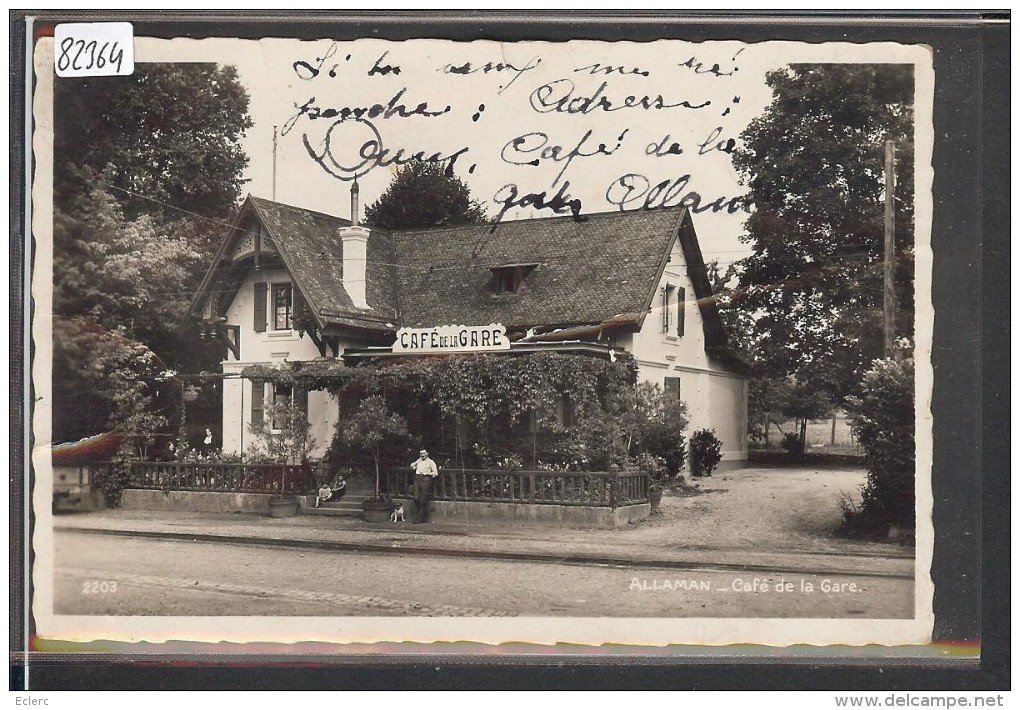 82364
Si tu veux me ré
pondre : Adresse ;
Café de la
gare Allam
CAFÉ DE LA GARE
2203
ALLAMAN _ Café de la Gare.
Eclerc
www.delcampe.net